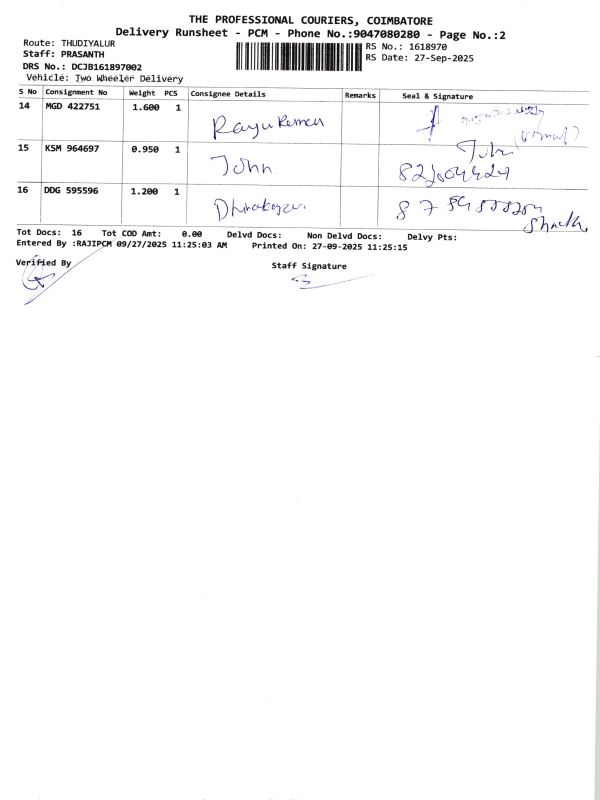 THE PROFESSIONAL COURIERS, COIMBATORE
Delivery Runsheet - PCM - Phone No.:9047080280 - Page No.:2
Route: THUDIYALUR
RS No.: 1618970
Staff: PRASANTH
RS Date: 27-Sep-2025
DRS No.: DCJB161897002
Vehicle: Two Wheeler Delivery
S No Consignment No Weight PCS Consignee Details Remarks Seal & Signature
14 MGD 422751 1.600 1
15 KSM 964697 0.950 1 John
16 DDG 595596 1.200 1
Tot Docs: 16 Tot COD Amt: 0.00 Delvd Docs: Non Delvd Docs: Delvy Pts:
Entered By :RAJIPCM 09/27/2025 11:25:03 AM Printed On: 27-09-2025 11:25:15
Verified By
Staff Signature